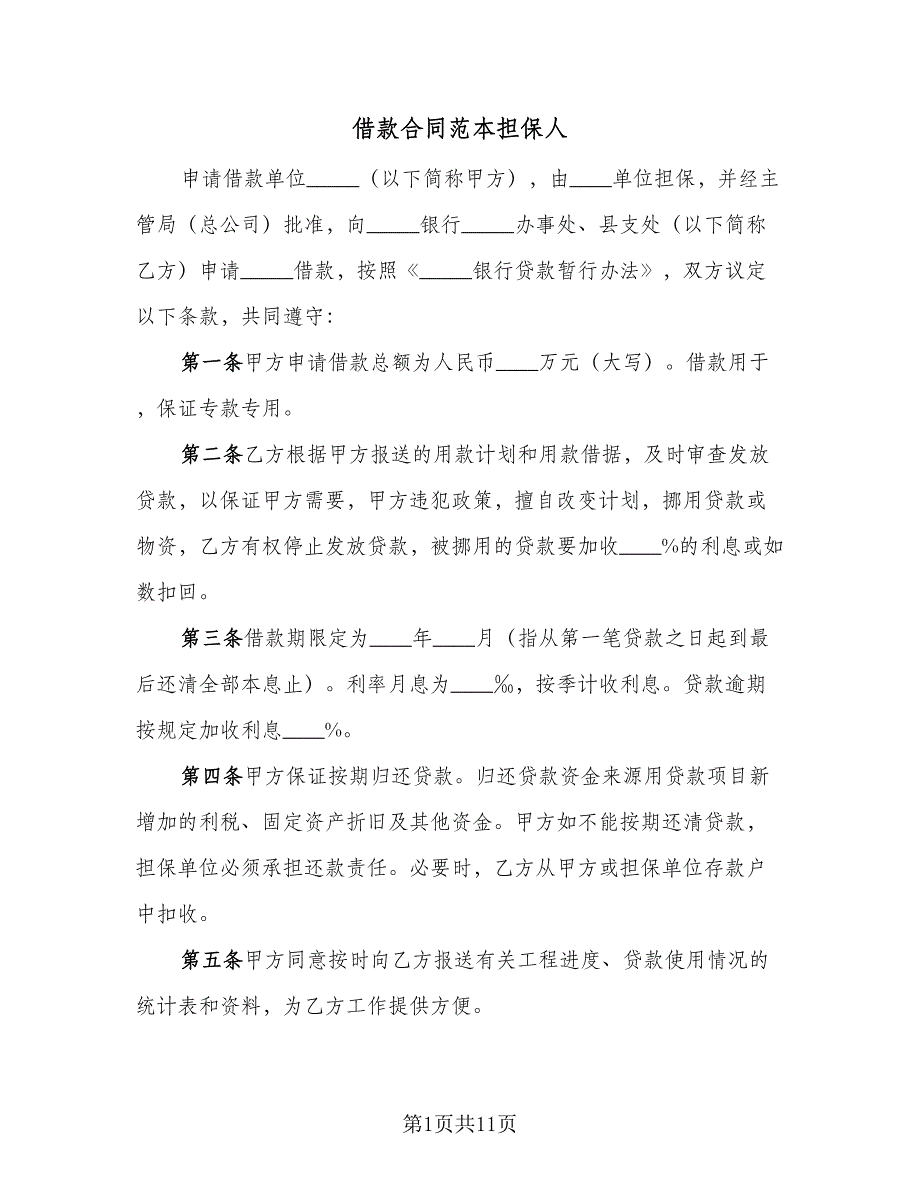 借款合同范本担保人
申请借款单位_____（以下简称甲方），由____单位担保，并经主
管局（总公司）批准，向_____银行_____办事处、县支处（以下简称
乙方）申请_____借款，按照《_____银行贷款暂行办法》，双方议定
以下条款，共同遵守：
第一条甲方申请借款总额为人民币____万元（大写）。借款用于
，保证专款专用。
第二条乙方根据甲方报送的用款计划和用款借据，及时审查发放
贷款，以保证甲方需要，甲方违犯政策，擅自改变计划，挪用贷款或
物资，乙方有权停止发放贷款，被挪用的贷款要加收____%的利息或如
数扣回。
第三条借款期限定为____年____月（指从第一笔贷款之日起到最
后还清全部本息止）。利率月息为____‰，按季计收利息。贷款逾期
按规定加收利息____%。
第四条甲方保证按期归还贷款。归还贷款资金来源用贷款项目新
增加的利税、固定资产折旧及其他资金。甲方如不能按期还清贷款，
担保单位必须承担还款责任。必要时，乙方从甲方或担保单位存款户
中扣收。
第五条甲方同意按时向乙方报送有关工程进度、贷款使用情况的
统计表和资料，为乙方工作提供方便。
第1页共11页